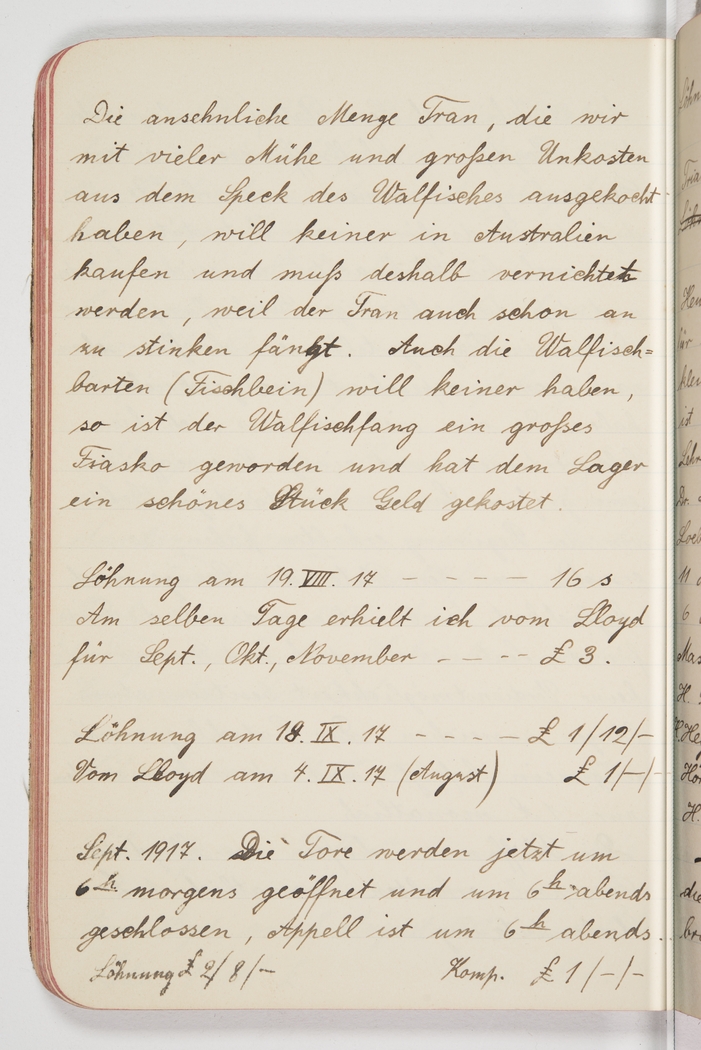 Die ansehnliche Menge Tran, die wir
mit vieler Mühe und großen Unkosten
aus dem Speck des Walfisches ausgekocht
haben, will keiner in Australien
kaufen und muß deshalb vernichtet
werden, weil der Tran auch schon an
zu stinken fängt. Auch die Walfisch=
barten (Fischbein) will keiner haben,
so ist der Walfischfang ein großes
Fiasko geworden und hat dem Lager
ein schönes Stück Geld gekostet.
Löhnung am 19. VIII. 17 - - - - - 16 s
Am selben Tage erhielt ich vom Lloyd
für Sept., Okt., November - - - - £ 3.
Löhnung am 18. IX. 17 - - - - - £ 1/12/-
Vom Lloyd am 4. IX. 17 (August) £ 1/-/-
Sept. 1917. Die Tore werden jetzt um
6 h morgens geöffnet und um 6 h abends
geschlossen, Appell ist um 6 h abends.
Löhnung £ 2/8/- Komp. £ 1/-/-